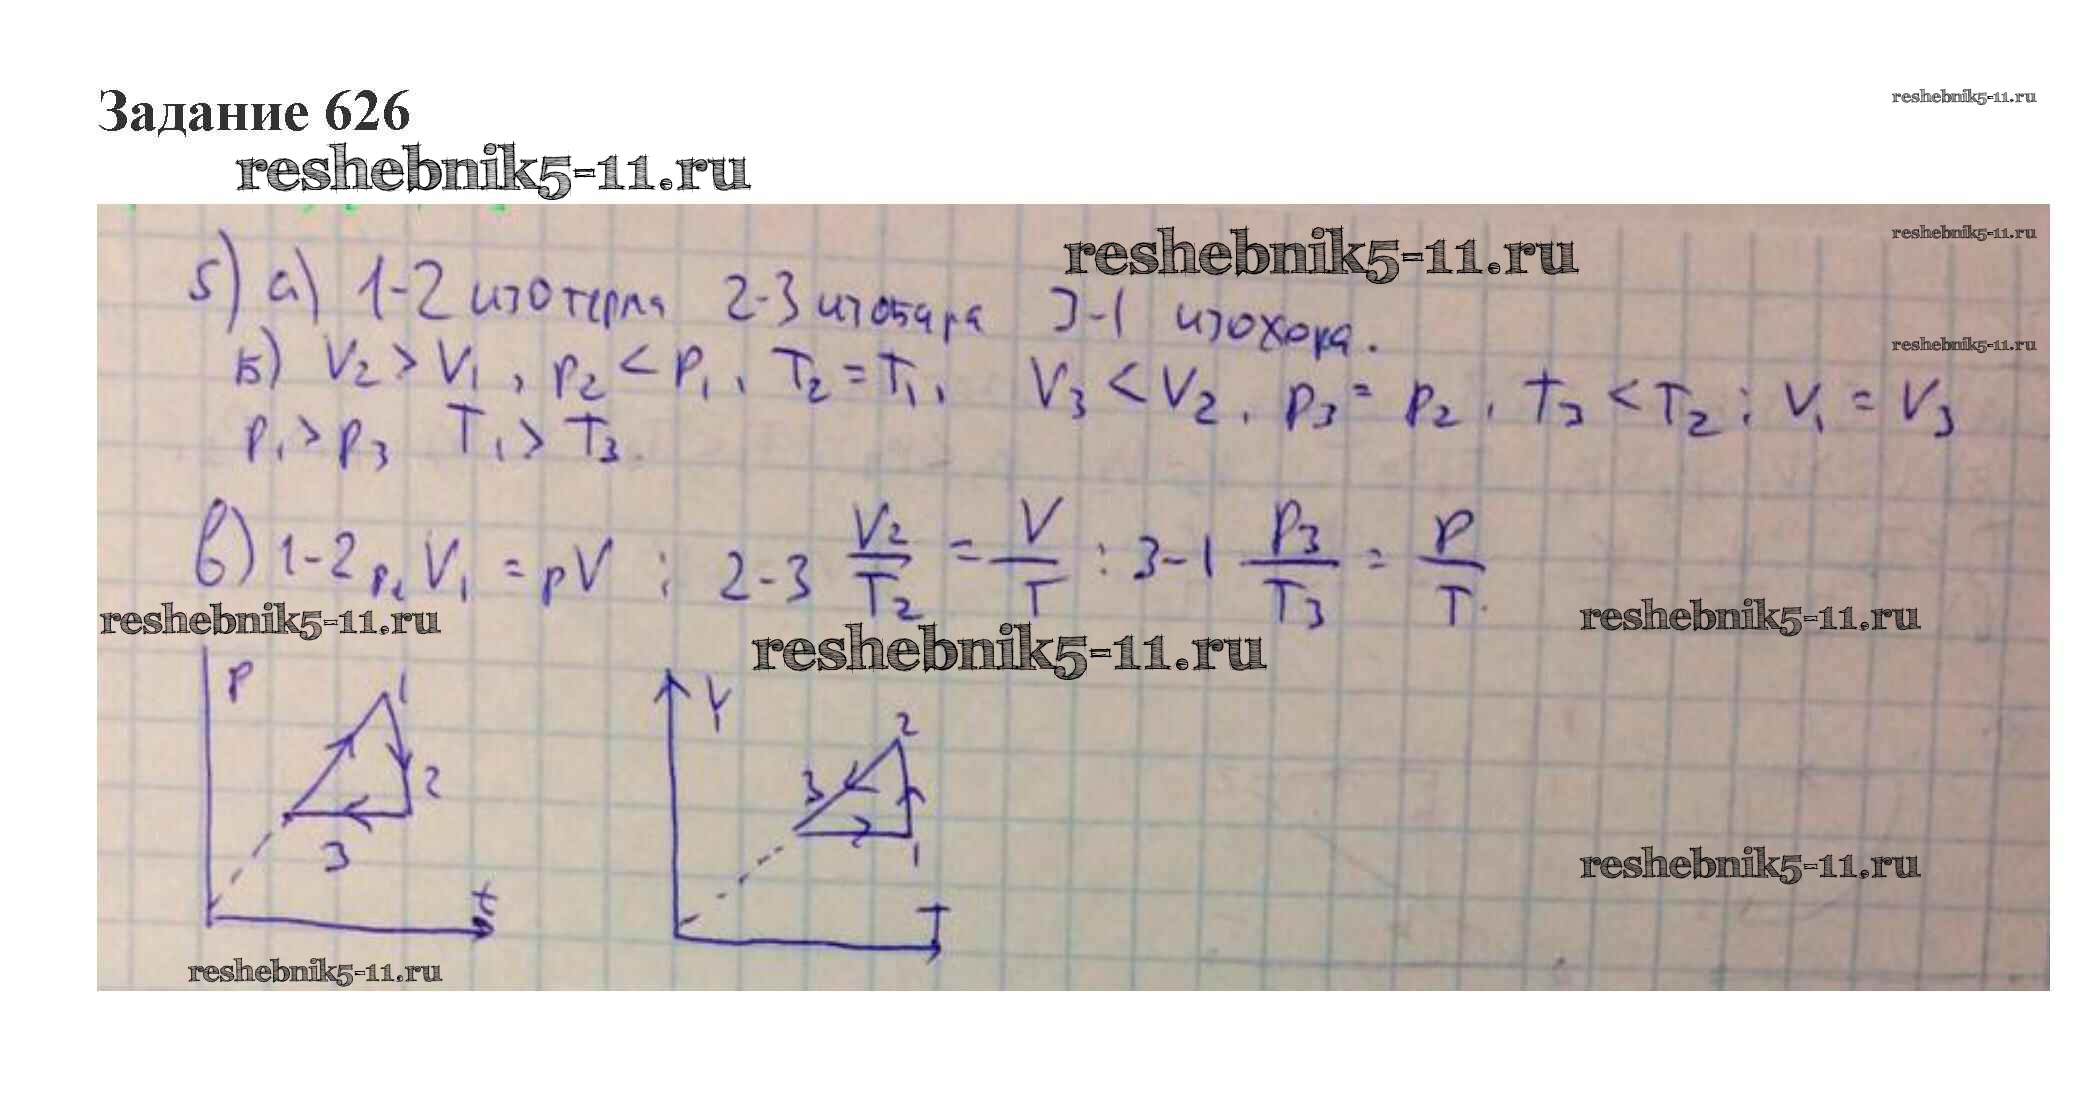 Задание 626
reshebnik5-11.ru
reshebnik5-11.ru
reshebnik5-11.ru
reshebnik5-11.ru
5) а) 1-2 изотерма 2-3 изобара 3-1 изохора.
reshebnik5-11.ru
б) V₂ > V₁, p₂ < p₁, T₂ = T₁, V₃ < V₂, p₃ = p₂, T₃ < T₂; V₁ = V₃
p₁ > p₃ T₁ > T₃.
в) 1-2 p₁ V₁ = pV ; 2-3 V₂/T₂ = V/T ; 3-1 p₃/T₃ = p/T.
reshebnik5-11.ru
reshebnik5-11.ru
reshebnik5-11.ru
P 1 2 3 t
V 2 3 1 T
reshebnik5-11.ru
reshebnik5-11.ru